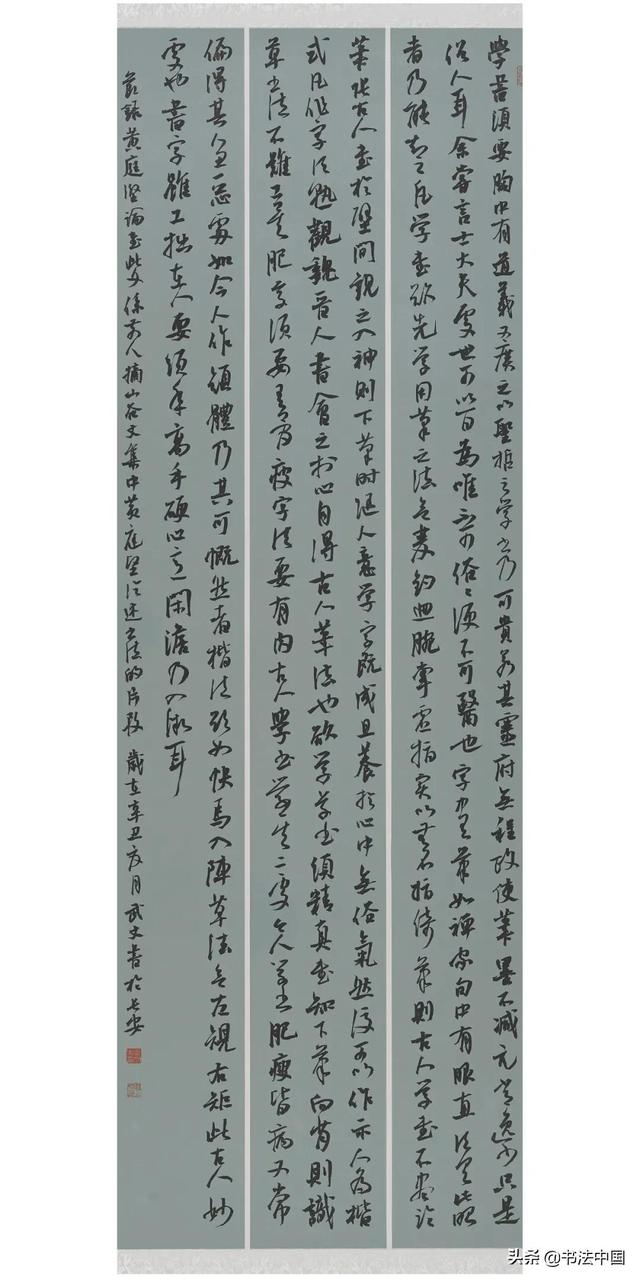 學書須要胸中有道義又廣之以聖哲之学書乃可貴若其靈府無程政使筆墨不減元常逸少只是
俗人耳余嘗言士大夫處世可以百為唯不可俗俗便不可醫也字中有筆如禪家句中有眼直須具此眼
者乃能知之凡学書欲先学用筆之法欲雙鈎迴腕掌虛指实以無名指倚筆則古人学書不盡臨
摹張古人書於壁間觀之入神則下筆時隨人意学字既成且養於心中無俗氣然後可以作示人為楷
式凡作字須熟觀魏晉人書會之於心自得古人筆法也欲学草書須精真書知下筆向背則識
草書法不難工矣肥字須要有骨瘦字須要有肉古人學書學其二處今人学書肥瘦皆病又常
偏得其人惡處如今人作顏體乃其可慨然者楷法欲如快馬入陣草法欲左規右矩此古人妙
處也書字雖工拙在人要須年高手硬心意閑澹乃入微耳
節錄黃庭堅論書此文係前人摘山谷文集中黃庭堅論述書法的片段 歲在辛丑夏月武文書於長安
头条 @书法中国